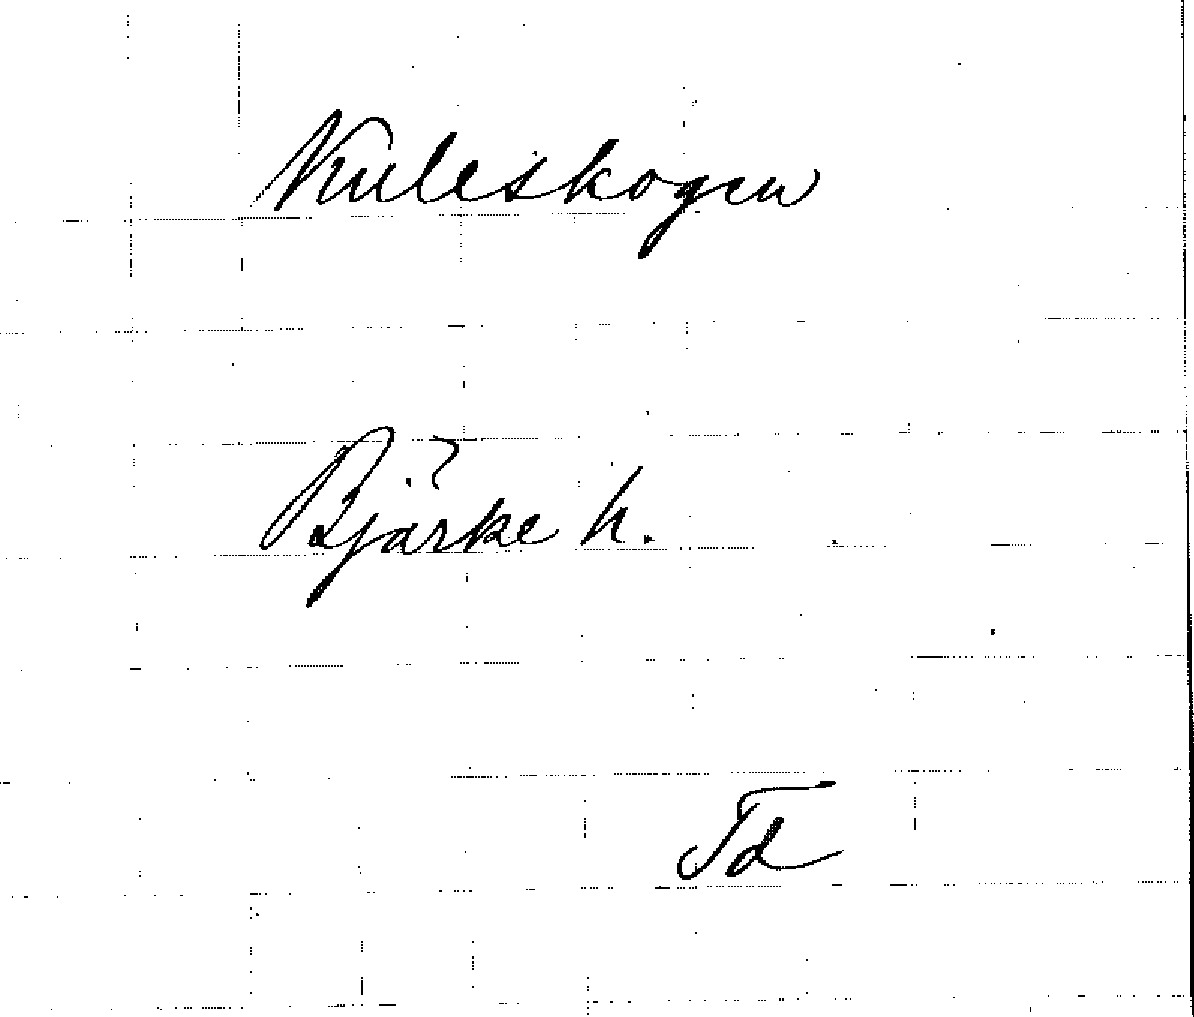 Kuleskogen
Bjärke h.
Td